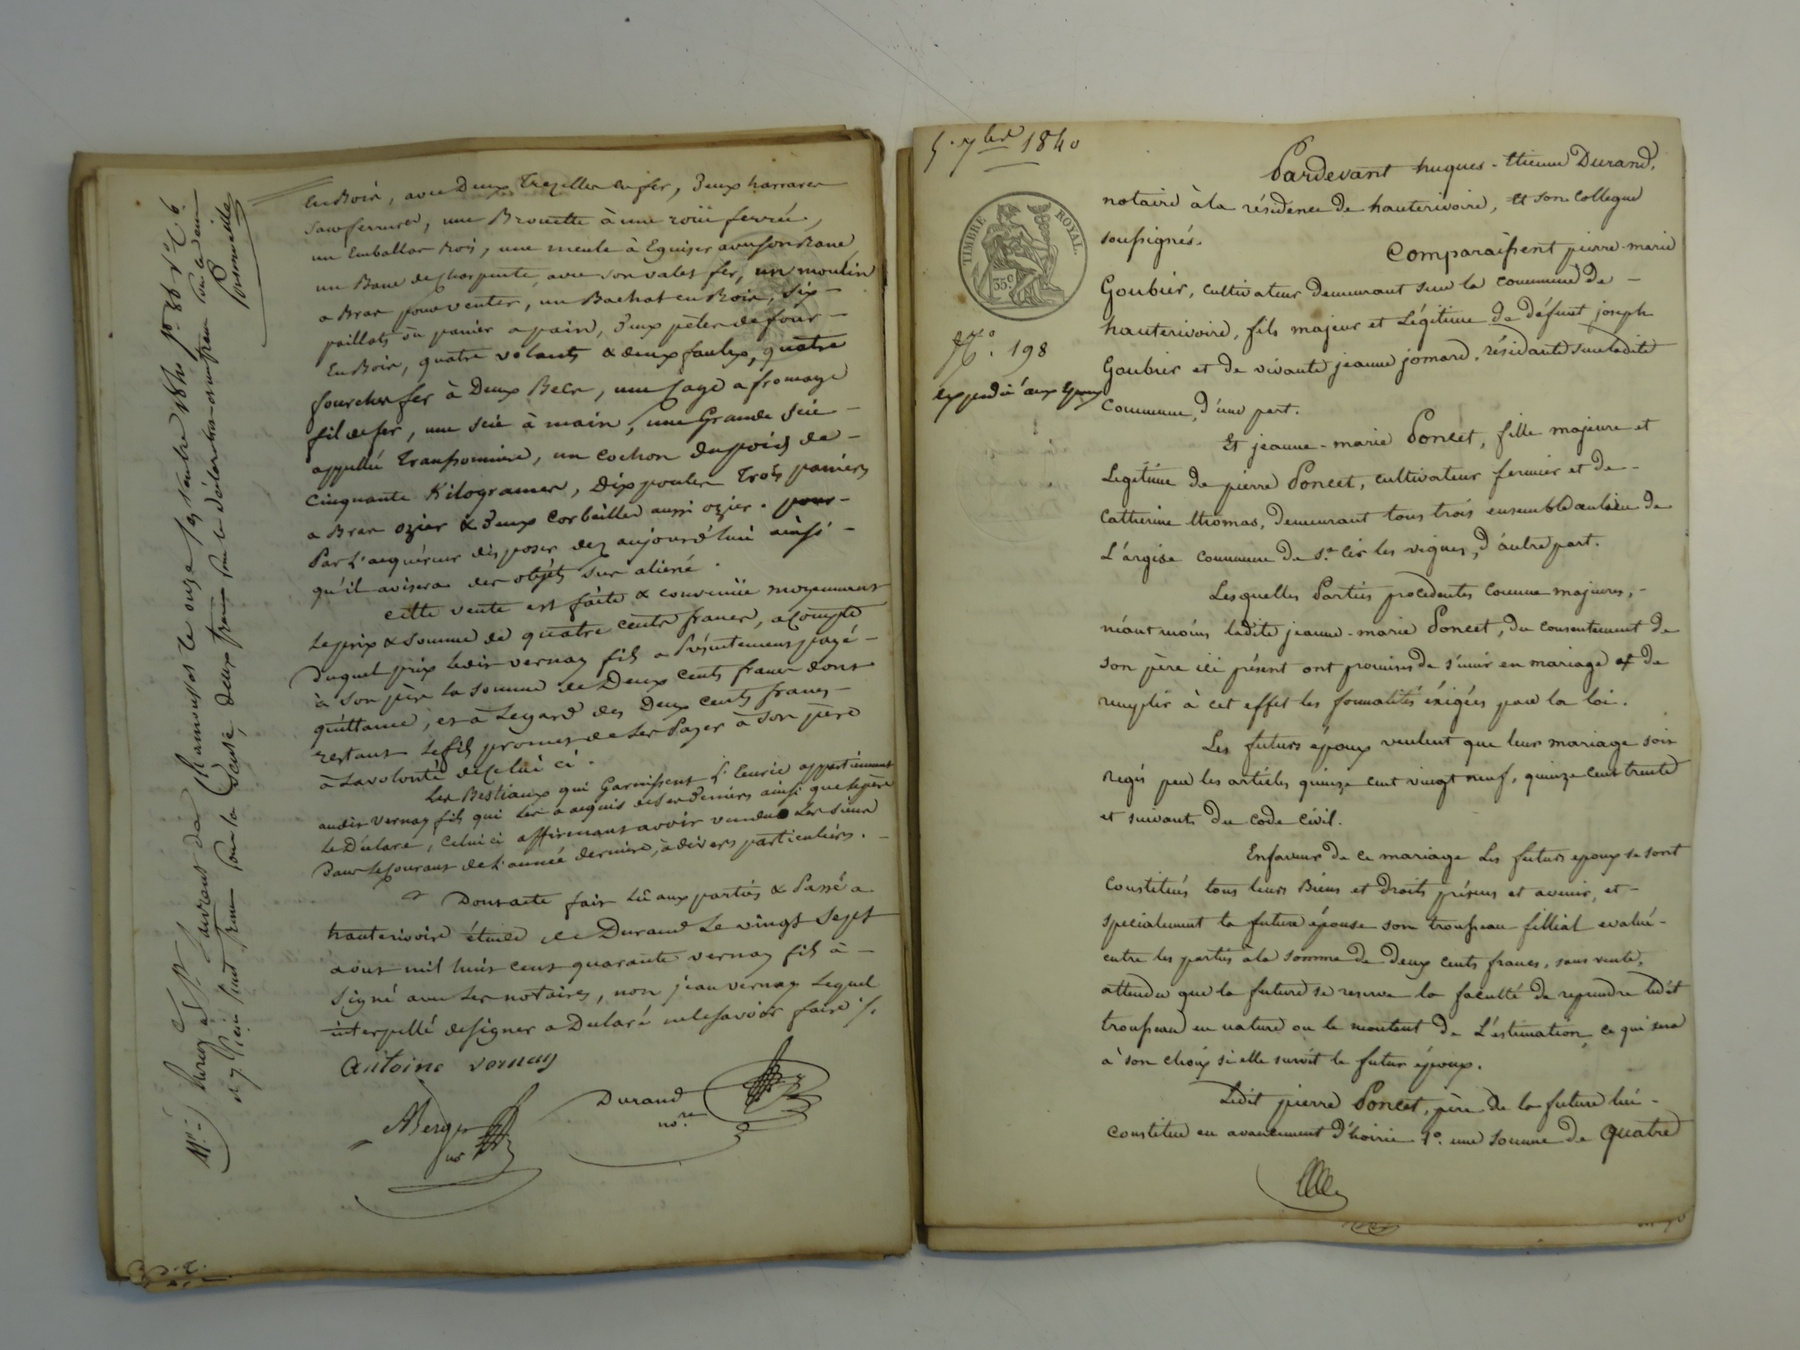 en Bois, avec Deux Trezelles en fer, Deux harrares
sans ferrures, une Brouette à une roüe ferrée,
un Emballar Bois, une meule à Eguiser avec son Banc
un Banc de charpente avec son valet fer, un moulin
a Bras pour venter, un Bachat en Bois, six
paillats ou panier a pain, Deux pèles de four
En Bois, quatre volants & deux faulx, quatre
fourches fer à Deux Becs, une Cage a fromage
fil de fer, une scie à main, une Grande scie
appellée Transonnière, un cochon du poids de
Cinquante Kilogrames, Dix poules Trois paniers
a Bras ozier & Deux Corbeilles aussi ozier. pour
Par L'acquéreur disposer dez aujourd'hui ainsi
qu'il avisera des objets sus aliené.
cette vente est faite & convenüe moyennant
Le prix & Somme de quatre cents francs, acompte
Duquel prix Ledit vernay fils a Présentement payé
à son père la somme de Deux cents francs dont
quittance, et à Legard des Deux cents francs
restant Le fils promet de Les Payer à son père
à La volonté de Celui ci.
Les Bestiaux qui Garnissent L'Ecurie appartiennent
audit vernay fils qui Les a acquis de ses Deniers ainsi que le père
Le Déclare, Celui ci affirmant avoir vendu Les siens
Dans le courant de L'année dernière, à divers particuliers.
Dont acte fait Lû aux parties & Passé a
hauterivoire étude de Durand Le vingt sept
aout mil huit cent quarante vernay fils à
Signé avec Les notaires, non jean vernay Lequel
interpellé de signer a Déclaré ne le savoir faire ./.
Antoine vernay
ABerger
nre
Durand
nore
5. 7bre 1840
TIMBRE ROYAL
35c
No. 198
expédié aux Epoux
Pardevant hugues-Etienne Durand,
notaire à la résidence de hauterivoire, et son Collegue
soussignés.
Comparaissent pierre-marie
Goubier, cultivateur demeurant sur la commune de
hauterivoire, fils majeur et Légitime de défunt joseph
Goubier et de vivante jeanne jomard, résidante sur ladite
Commune, d'une part.
Et jeanne-marie Poncet, fille majeure et
Legitime de pierre Poncet, cultivateur fermier et de
Catherine thomas, demeurant tous trois ensemble au lieu de
L'argise commune de St Cir les vignes, d'autre part.
Lesquelles Parties procedentes comme majeures,
néantmoins ladite jeanne-marie Poncet, du consentement de
son père ici présent ont promis de s'unir en mariage et de
remplir à cet effet les formalités éxigées par la loi.
Les futurs époux veulent que leur mariage soit
régis par les articles quinze cent vingt neuf, quinze cent trente
et suivants du code civil.
En faveur de ce mariage Les futurs époux se sont
Constitués tous leurs Biens et droits présens et avenir, et
specialement la future épouse son trousseau fillial evalué
entre les parties à la somme de deux cents francs, sans vente,
attendu que la future se reserve la faculté de reprendre ledit
trousseau en nature ou le montant de L'estimation, ce qui sera
à son choix si elle survit le futur époux.
Ledit pierre Poncet, père de la future lui
constitue en avancement d'hoirie 1o. une somme de quatre